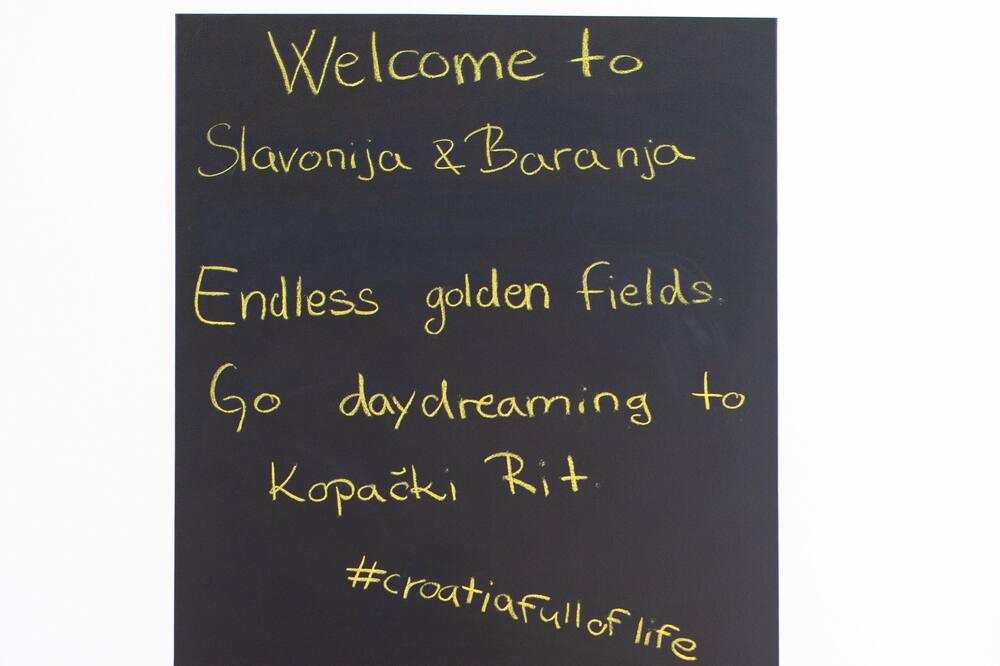 Welcome to
Slavonija & Baranja
Endless golden fields.
Go daydreaming to
Kopački Rit.
#croatiafulloflife